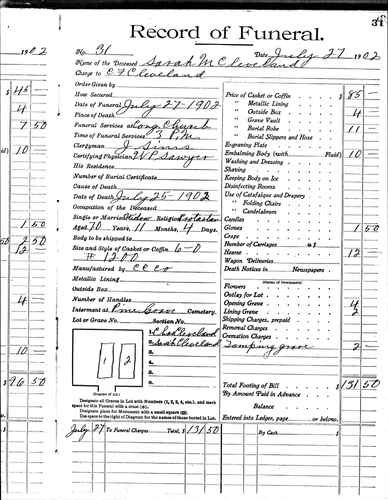 31
Record of Funeral.
1902
No. 31
Date July 27 1902
Name of the Deceased Sarah M Cleveland
Charge to C F Cleveland
Order Given by
How Secured
Date of Funeral July 27-1902
Place of Death
Funeral Services at Cong Church
Time of Funeral Services 3 P.M.
Clergyman J Sims
Certifying Physician W P Sawyer
His Residence
Number of Burial Certificate
Cause of Death
Date of Death July 25-1902
Occupation of the Deceased
Single or Married Widow Religion Protestan
Aged 70 Years 11 Months, 4 Days.
Body to be shipped to
Size and Style of Casket or Coffin 6-0
# 1200
Manufactured by C C Co
Metallic Lining
Outside Box
Number of Handles
Interment at Pine Grove Cemetery.
Lot or Grave No. Section No.
1. Chas Cleveland
2. Sarah Cleveland
3.
4.
5.
1 2
(Diagram of Lot.)
Designate all Graves in Lot with Numbers (1, 2, 3, 4, etc.), and mark
space for this Funeral with a cross (+).
Designate place for Monument with a small square (□).
Use space to the right of Diagram for names of those buried in Lot.
July 27 To Funeral Charges Total, $ 151 50
Price of Casket or Coffin $ 85 —
" Metallic Lining
" Outside Box 4
" Grave Vault
" Burial Robe 11
" Burial Slippers and Hose
Engraving Plate
Embalming Body (with Fluid) 10 —
Washing and Dressing
Shaving
Keeping Body on Ice
Disinfecting Rooms
Use of Catafalque and Drapery
" Folding Chairs
" Candelabrum
Candles
Gloves 1 50
Crape
Number of Carriages @ $
Hearse 12 —
Wagon Deliveries
Death Notices in Newspapers
(Names of Newspapers)
Flowers
Outlay for Lot
Opening Grave 4
Lining Grave 2
Shipping Charges, prepaid
Removal Charges
Cremation Charges
Tamping grave 2 —
Total Footing of Bill $ 131 50
By Amount Paid in Advance
Balance
Entered into Ledger, page or below.
By Cash $
$ 45 —
4
7 50
10 —
1 50
2 50
12 —
4
10 —
$ 96 50